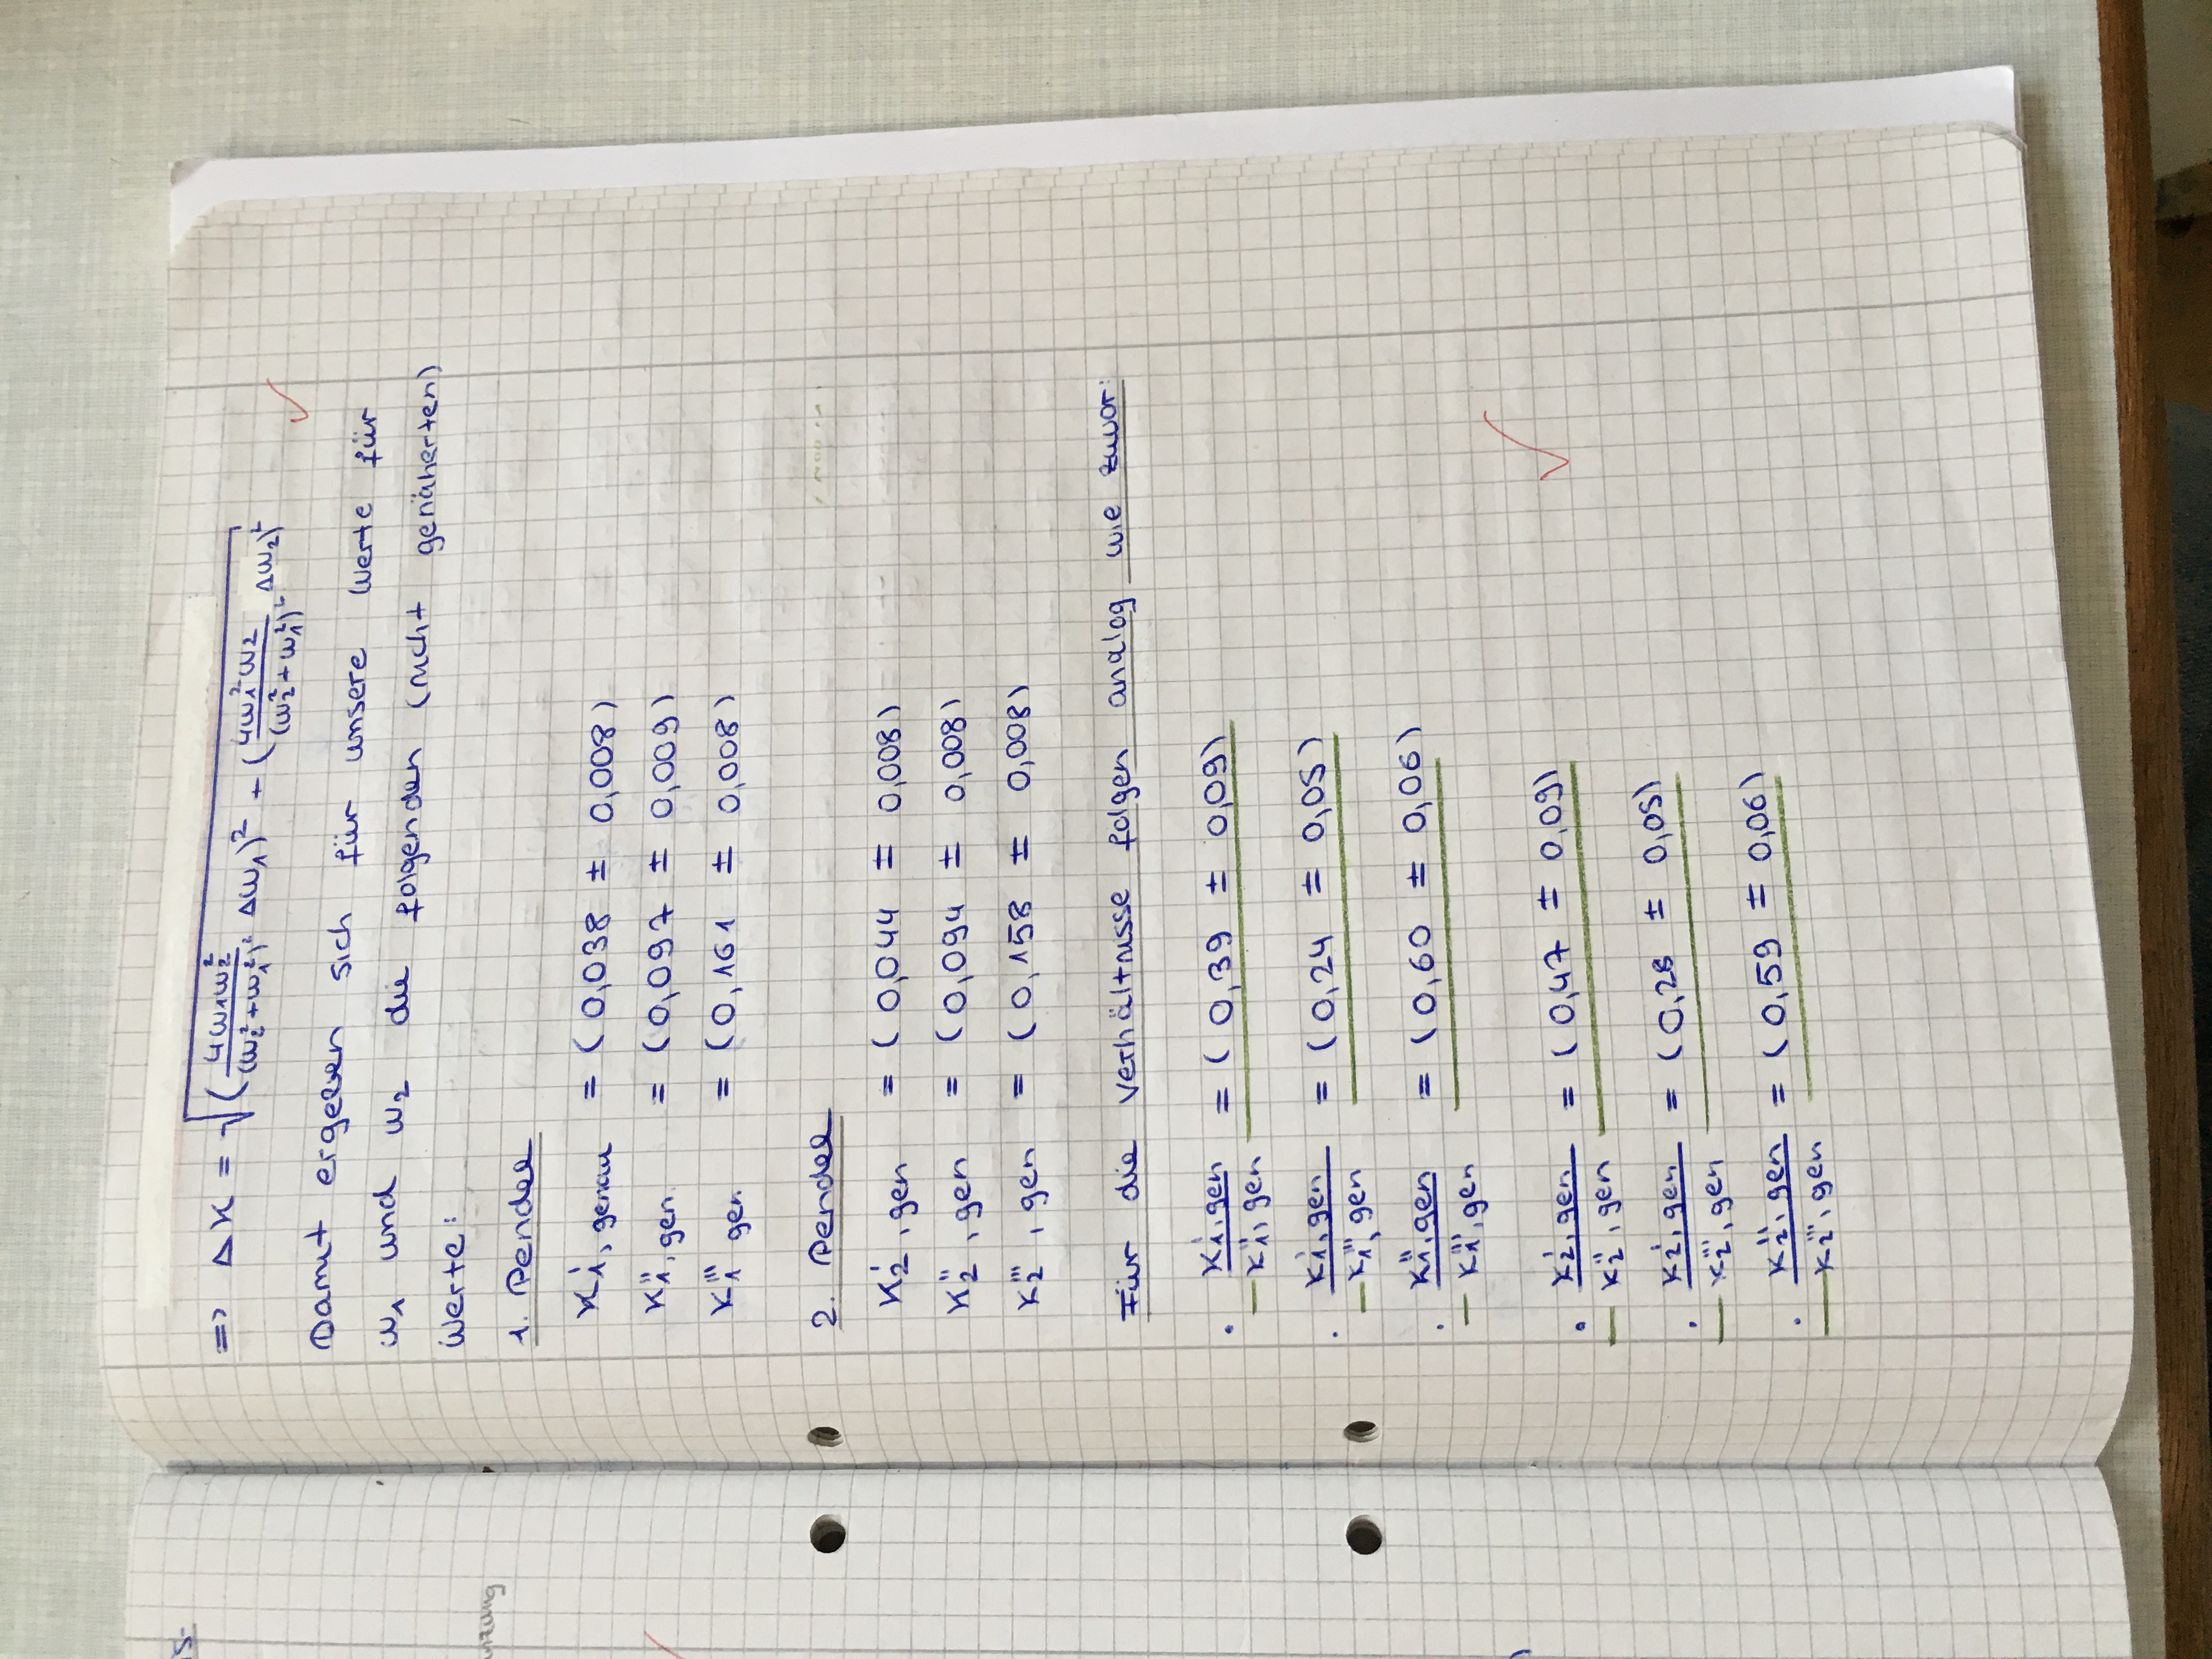 => Δϰ = √((4ω₁ω₂²/(ω₂²+ω₁²)² Δω₁)² + (4ω₁²ω₂/(ω₂²+ω₁²)² Δω₂)²)
Damit ergeben sich für unsere Werte für
ω₁ und ω₂ die folgenden (nicht genäherten)
Werte:
1. Pendel
ϰ₁', genau = (0,038 ± 0,008)
ϰ₁'', gen = (0,097 ± 0,009)
ϰ₁''' gen = (0,161 ± 0,008)
2. Pendel
ϰ₂', gen = (0,044 ± 0,008)
ϰ₂'', gen = (0,094 ± 0,008)
ϰ₂''', gen = (0,158 ± 0,008)
Für die Verhältnisse folgen analog wie zuvor:
· ϰ₁', gen / ϰ₁'', gen = (0,39 ± 0,09)
· ϰ₁', gen / ϰ₁''', gen = (0,24 ± 0,05)
· ϰ₁'', gen / ϰ₁''', gen = (0,60 ± 0,06)
· ϰ₂', gen / ϰ₂'', gen = (0,47 ± 0,09)
· ϰ₂', gen / ϰ₂''', gen = (0,28 ± 0,05)
· ϰ₂'', gen / ϰ₂''', gen = (0,59 ± 0,06)